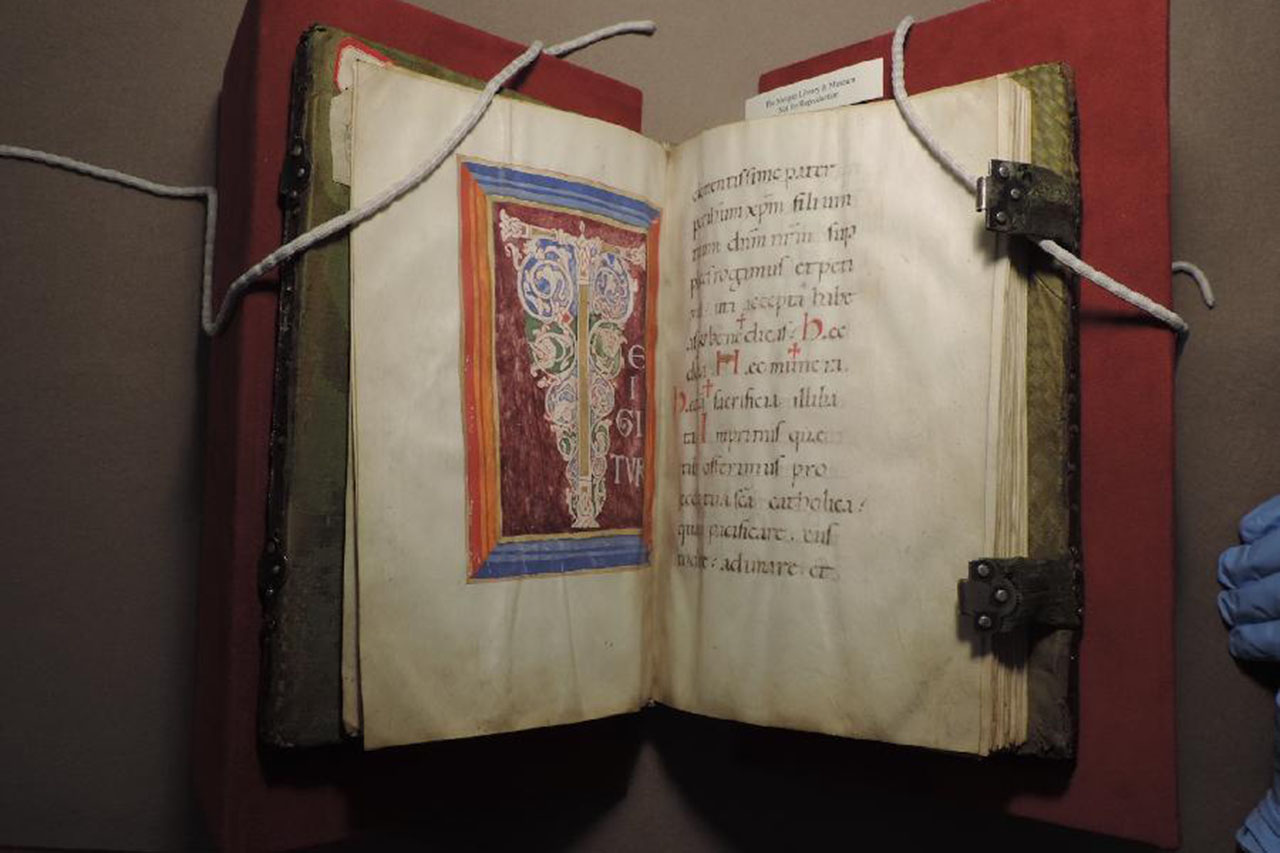 The Morgan Library & Museum
Not for Reproduction
T
E
I
GI
TVR
clementissime pater
per ihum xp̄m filium
tuum dn̄m nr̄m sup
plices rogamus et peti
mus uti accepta habe
benedicas. H.ec
dona. H.ec munera.
H.ec sacrificia illiba
ta. Inprimis que
tibi offerimus pro
tua sc̄a catholica:
quam pacificare. cus
todire: adunare et